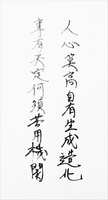 人心莫高自有生成造化
事有天定何須苦用機關